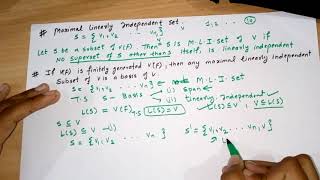 # Maximal Linearly Independent Set.
S = { v₁, v₂ ... vₙ }
Let S be a subset of V(F). Then S is M.L.I set of V if
No superset of S other than S itself, is linearly independent
# If V(F) is finitely generated V(F), then any Maximal linearly independent
Subset of V is a basis of V.
S = { v₁, v₂ ... vₙ } M.L.I set
T.S (i) span
(ii) linearly independent
L(S) = V(F) T.S L(S) = V
L(S) ⊆ V, V ⊆ L(S)
S ⊆ V
L(S) ⊆ V —(i)
S = { v₁, v₂ ... vₙ } S' = { v₁, v₂ ... vₙ, v }